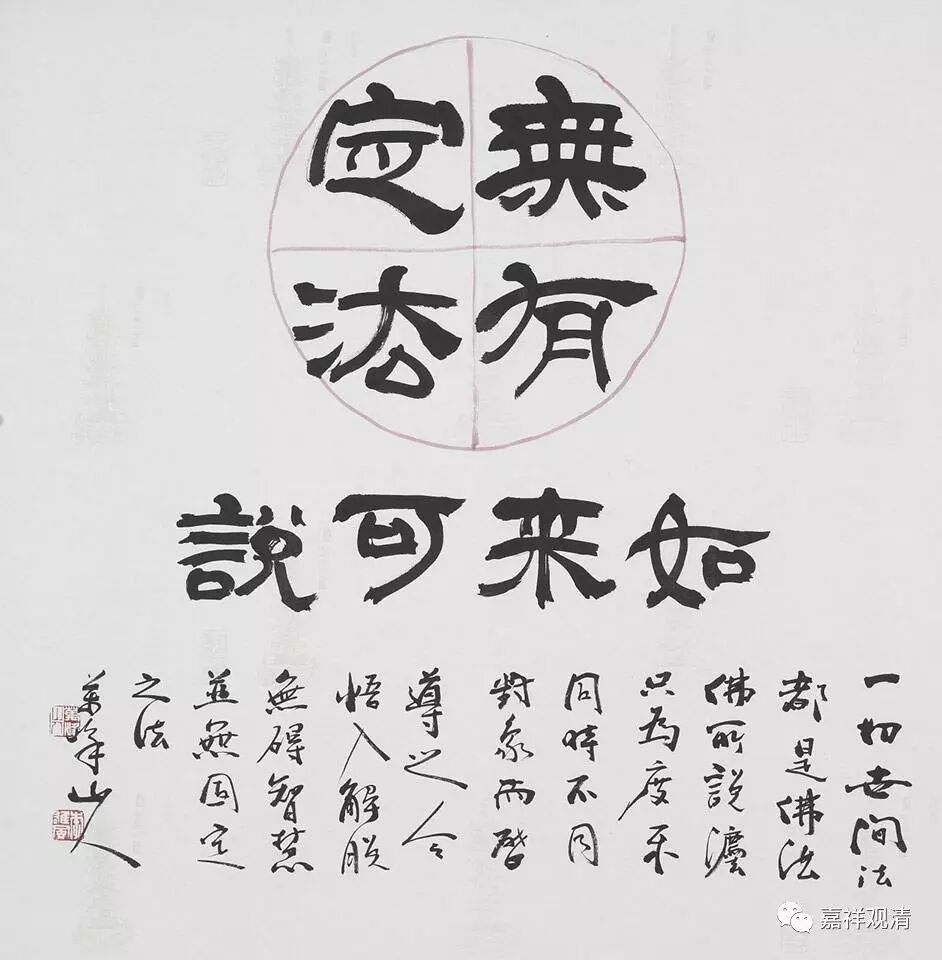 無有
定法
如来可說
一切世間法
都是佛法
佛所說灋
只為度不
同時不同
對象而啓
導之令
悟入解脱
無碍智慧
並無固定
之法
山人
嘉祥观清